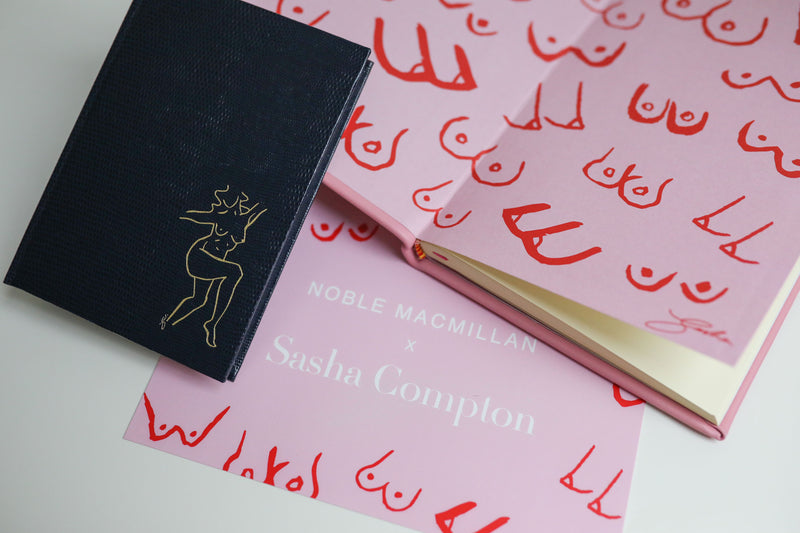 NOBLE MACMILLAN
x
Sasha Compton
Sasha